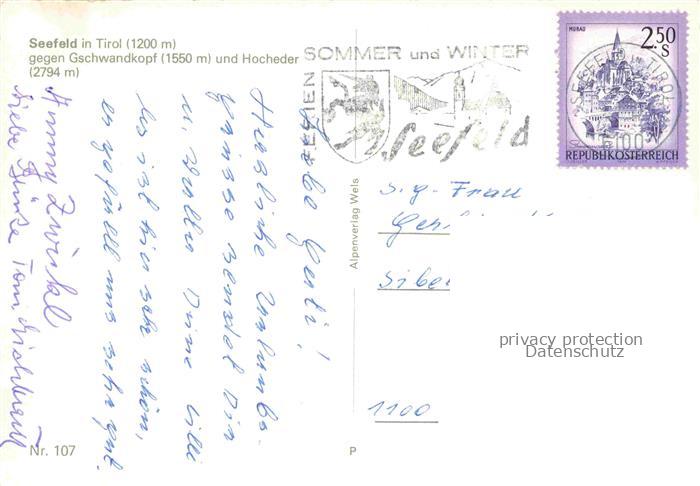 Seefeld in Tirol (1200 m)
gegen Gschwandkopf (1550 m) und Hocheder
(2794 m)
FERIEN
SOMMER und WINTER
Seefeld
MURAU
2.50
S
REPUBLIK ÖSTERREICH
SEEFELD IN TIROL
6100
Liebe Gerti!
Herzliche Urlaubs-
grüsse sendet Dir
u. Walter Deine Lilli
Es ist hier sehr schön,
es gefällt uns sehr gut.
Liebe Grüße
Alpenverlag Wels
S. g. Frau
Ger
Sibe
1100
privacy protection
Datenschutz
Nr. 107
P